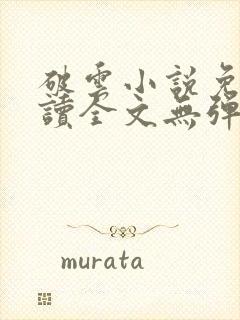 破雲小說免
讀全文無彈
murata